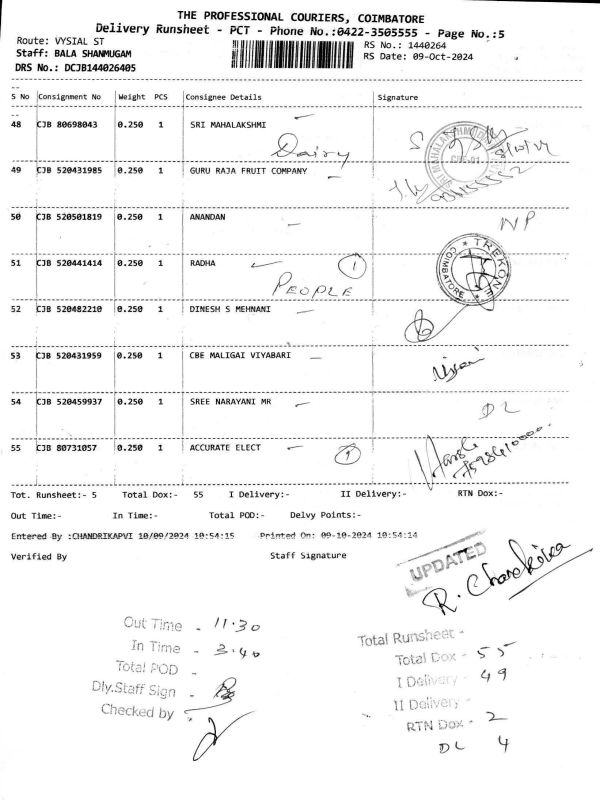 THE PROFESSIONAL COURIERS, COIMBATORE
Delivery Runsheet - PCT - Phone No.:0422-3505555 - Page No.:5
Route: VYSIAL ST
Staff: BALA SHANMUGAM
DRS No.: DCJB144026405
RS No.: 1440264
RS Date: 09-Oct-2024
S No Consignment No Weight PCS Consignee Details Signature
48 CJB 80698043 0.250 1 SRI MAHALAKSHMI
Dairy
49 CJB 520431985 0.250 1 GURU RAJA FRUIT COMPANY
50 CJB 520501819 0.250 1 ANANDAN NP
51 CJB 520441414 0.250 1 RADHA 1
PEOPLE
TREKONE
COIMBATORE
52 CJB 520482210 0.250 1 DINESH S MEHNANI
53 CJB 520431959 0.250 1 CBE MALIGAI VIYABARI
54 CJB 520459937 0.250 1 SREE NARAYANI MR DL
55 CJB 80731057 0.250 1 ACCURATE ELECT
Tot. Runsheet:- 5 Total Dox:- 55 I Delivery:- II Delivery:- RTN Dox:-
Out Time:- In Time:- Total POD:- Delvy Points:-
Entered By :CHANDRIKAPVI 10/09/2024 10:54:15 Printed On: 09-10-2024 10:54:14
Verified By Staff Signature
UPDATED
R. Chandrika
Out Time - 11.30
In Time - 3.40
Total POD -
Dly.Staff Sign -
Checked by
Total Runsheet -
Total Dox - 55
I Delivery - 49
II Delivery -
RTN Dox - 2
DL 4